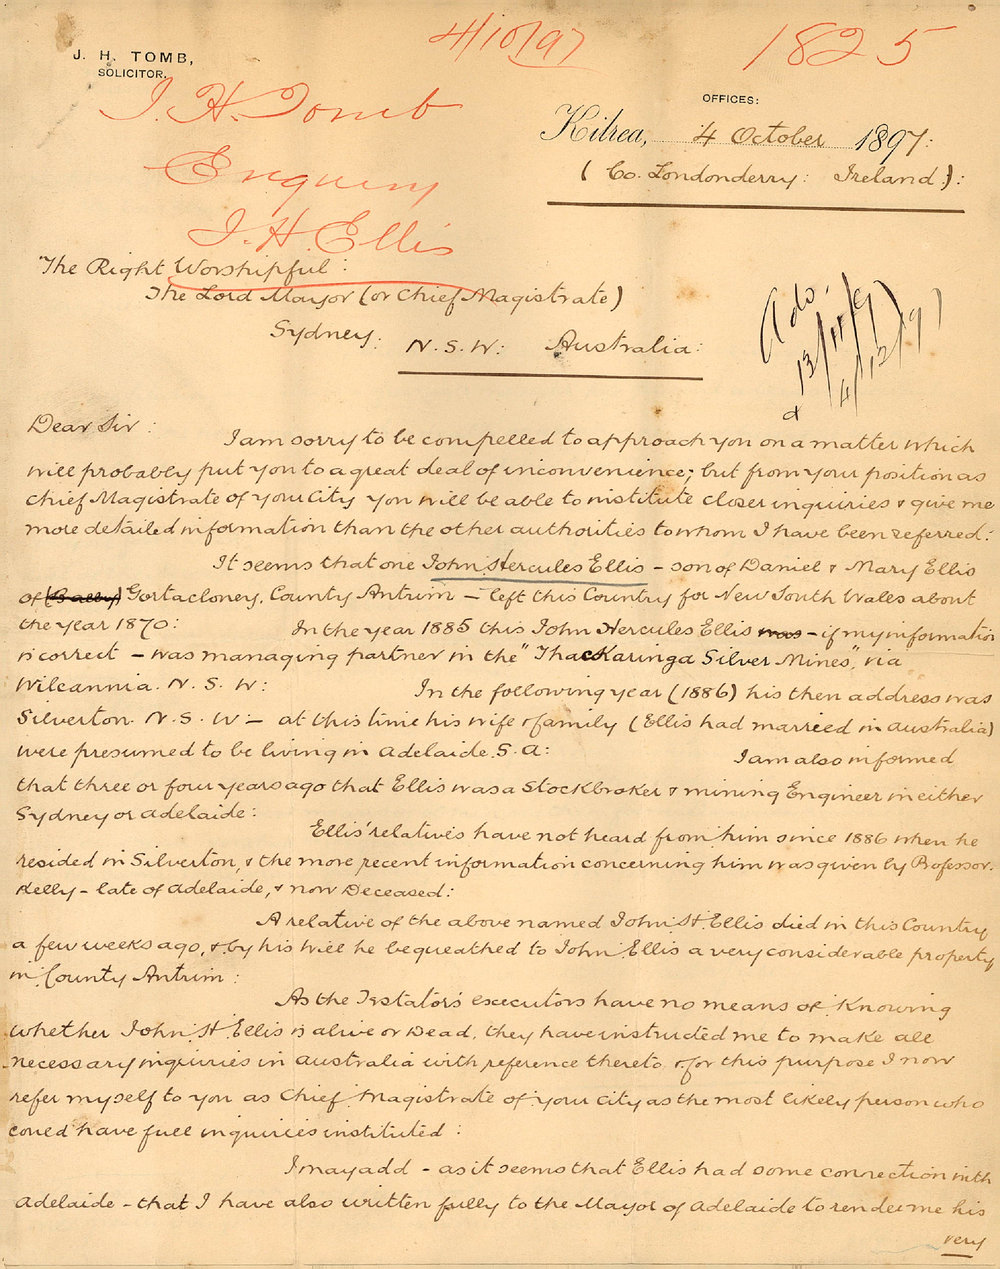 4/10/97 1825
J. H. TOMB,
SOLICITOR.
J. H. Tomb
Enquiry
J. H. Ellis
OFFICES:
Kilrea, 4 October 1897:
(Co. Londonderry: Ireland.):
"The Right Worshipful:
The Lord Mayor (or Chief Magistrate)
Sydney: N. S. W: Australia:
13/11/97
& 4/12/97
Dear Sir:
I am sorry to be compelled to approach you on a matter which
will probably put you to a great deal of inconvenience; but from your position as
Chief Magistrate of your City you will be able to institute closer inquiries & give me
more detailed information than the other authorities to whom I have been referred:
It seems that one John Hercules Ellis - son of Daniel & Mary Ellis
of (Bally) Gortacloney, County Antrim - left this Country for New South Wales about
the year 1870: In the year 1885 this John Hercules Ellis was - if my information
is correct - was managing partner in the "Thackaringa Silver Mines," via
Wilcannia. N. S. W: In the following year (1886) his then address was
Silverton. N. S. W - at this time his wife & family (Ellis had married in Australia)
were presumed to be living in Adelaide. S. A: I am also informed
that three or four years ago that Ellis was a Stockbroker & mining Engineer in either
Sydney or Adelaide:
Ellis' relatives have not heard from him since 1886 when he
resided in Silverton, & the more recent information concerning him was given by Professor.
Kelly - late of Adelaide, & now Deceased:
A relative of the above named John H. Ellis died in this Country
a few weeks ago, & by his will he bequeathed to John Ellis a very considerable property
in County Antrim:
As the Testator's executors have no means of knowing
whether John H Ellis is alive or Dead, they have instructed me to make all
necessary inquiries in Australia with reference thereto & for this purpose I now
refer myself to you as Chief Magistrate of your City as the most likely person who
could have full inquiries instituted:
I may add - as it seems that Ellis had some connection with
Adelaide - that I have also written fully to the Mayor of Adelaide to render me his
very